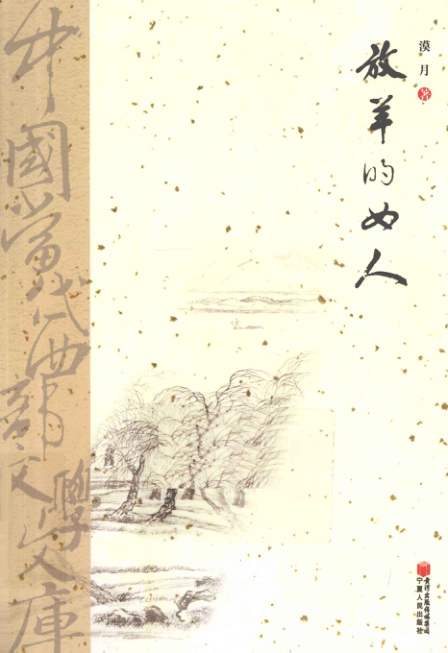 漠月
著
放羊的女人
中國当代西部文學文庫
黄河出版传媒集团
宁夏人民出版社